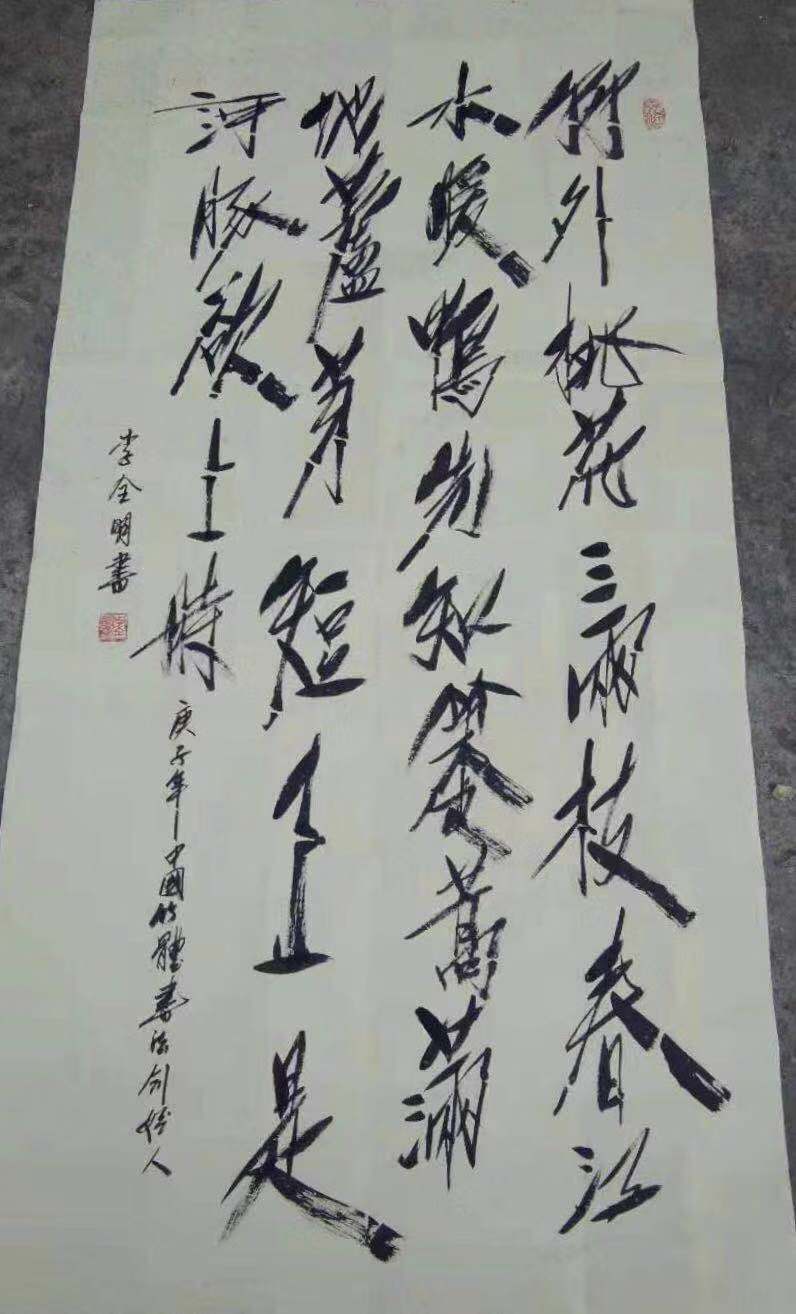 竹外桃花三兩枝春江
水暖鴨先知蔞蒿滿
地蘆芽短正是
河豚欲上時
庚子年中國竹體書法創始人
李全明書